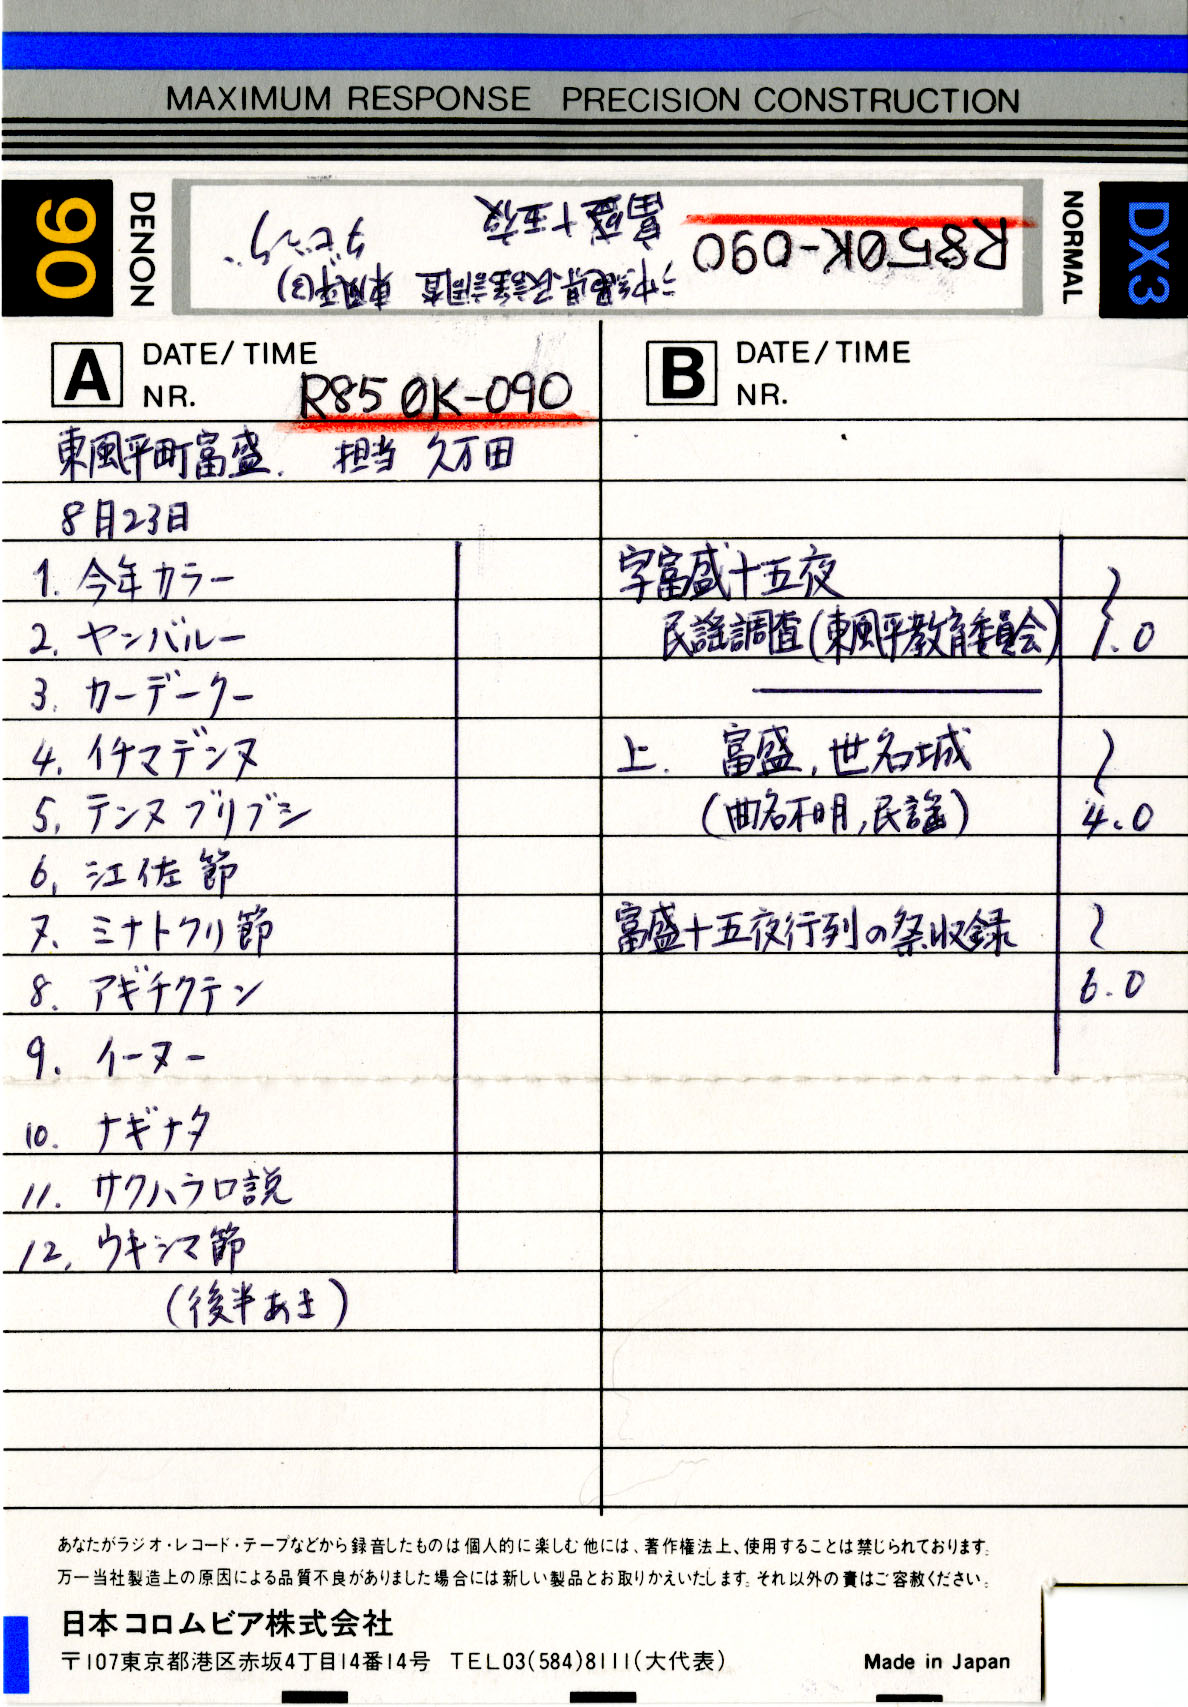 MAXIMUM RESPONSE PRECISION CONSTRUCTION
90
DENON
R850K-090
富盛十五夜
沖縄県民謡調査 東風平(3)
ダビング
NORMAL
DX3
A DATE/TIME
NR. R850K-090
東風平町富盛. 担当 久万田
8月23日
1. 今年カラー
2. ヤンバルー
3. カーデークー
4. イチマデンヌ
5. テンヌブリブシ
6. 江佐節
7. ミナトクリ節
8. アギチクテン
9. イーヌー
10. ナギナタ
11. サクハラ口説
12. ウキシマ節
(後半あき)
B DATE/TIME
NR.
字富盛十五夜
民謡調査(東風平教育委員会) 〜1.0
上. 富盛, 世名城 〜
(曲名不明, 民謡) 4.0
富盛十五夜行列の祭収録 〜
6.0
あなたがラジオ・レコード・テープなどから録音したものは個人的に楽しむ他には、著作権法上、使用することは禁じられております。
万一当社製造上の原因による品質不良がありました場合には新しい製品とお取りかえいたします。それ以外の責はご容赦ください。
日本コロムビア株式会社
〒107東京都港区赤坂4丁目14番14号 TEL03(584)8111(大代表)
Made in Japan